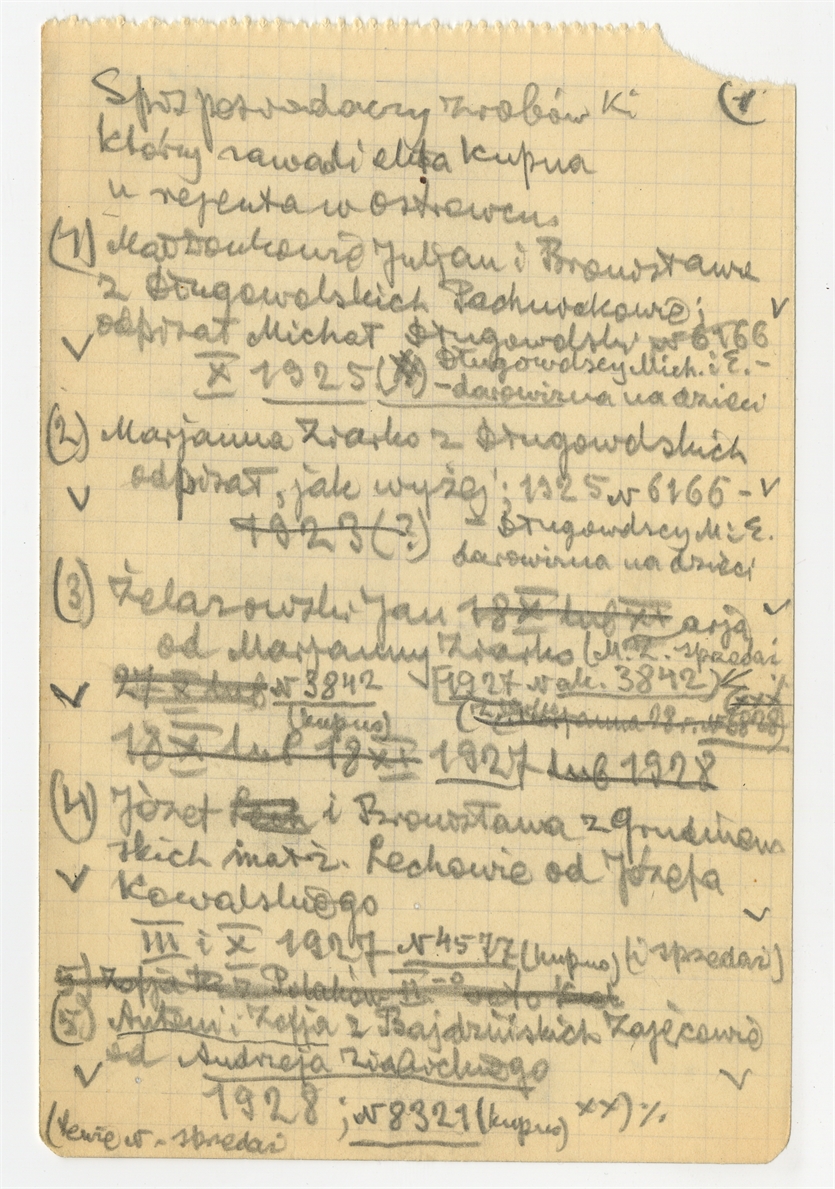 Spis posiadaczy zrobówki (1)
którzy zawarli akta kupna
u rejenta w Ostrowcu.
(1) Małżonkowie Juljan i Bronisława
z Długowolskich Pachurkowie;
odpisał Michał Długowolski № 6166
X 1925 Długowolscy Mich. i E. -
- darowizna na dzieci
(2) Marjanna Ziarko z Długowolskich
odpisał, jak wyżej; 1925 № 6166 -
1923 (?) - Długowolscy M. i E.
darowizna na dzieci
(3) Żelazowski Jan 18 X lub XI
od Marjanny Ziarko (M. Z. sprzedaż
27 X lub № 3842 [1927 № ak. 3842)
(kupno)
18 X lub 18 XI 1927 lub 1928
(4) Józef i Bronisława z Grudniow
skich małż. Lechowie od Józefa
Kowalskiego
III i X 1927 № 4577 (kupno) (i sprzedaż)
5) Zofja z Polaków II-o voto
(5) Antoni i Zofja z Bajdzińskich Zajęcowie
od Andrzeja
1928; № 8321 (kupno) xx) %
(tenże № - sprzedaż